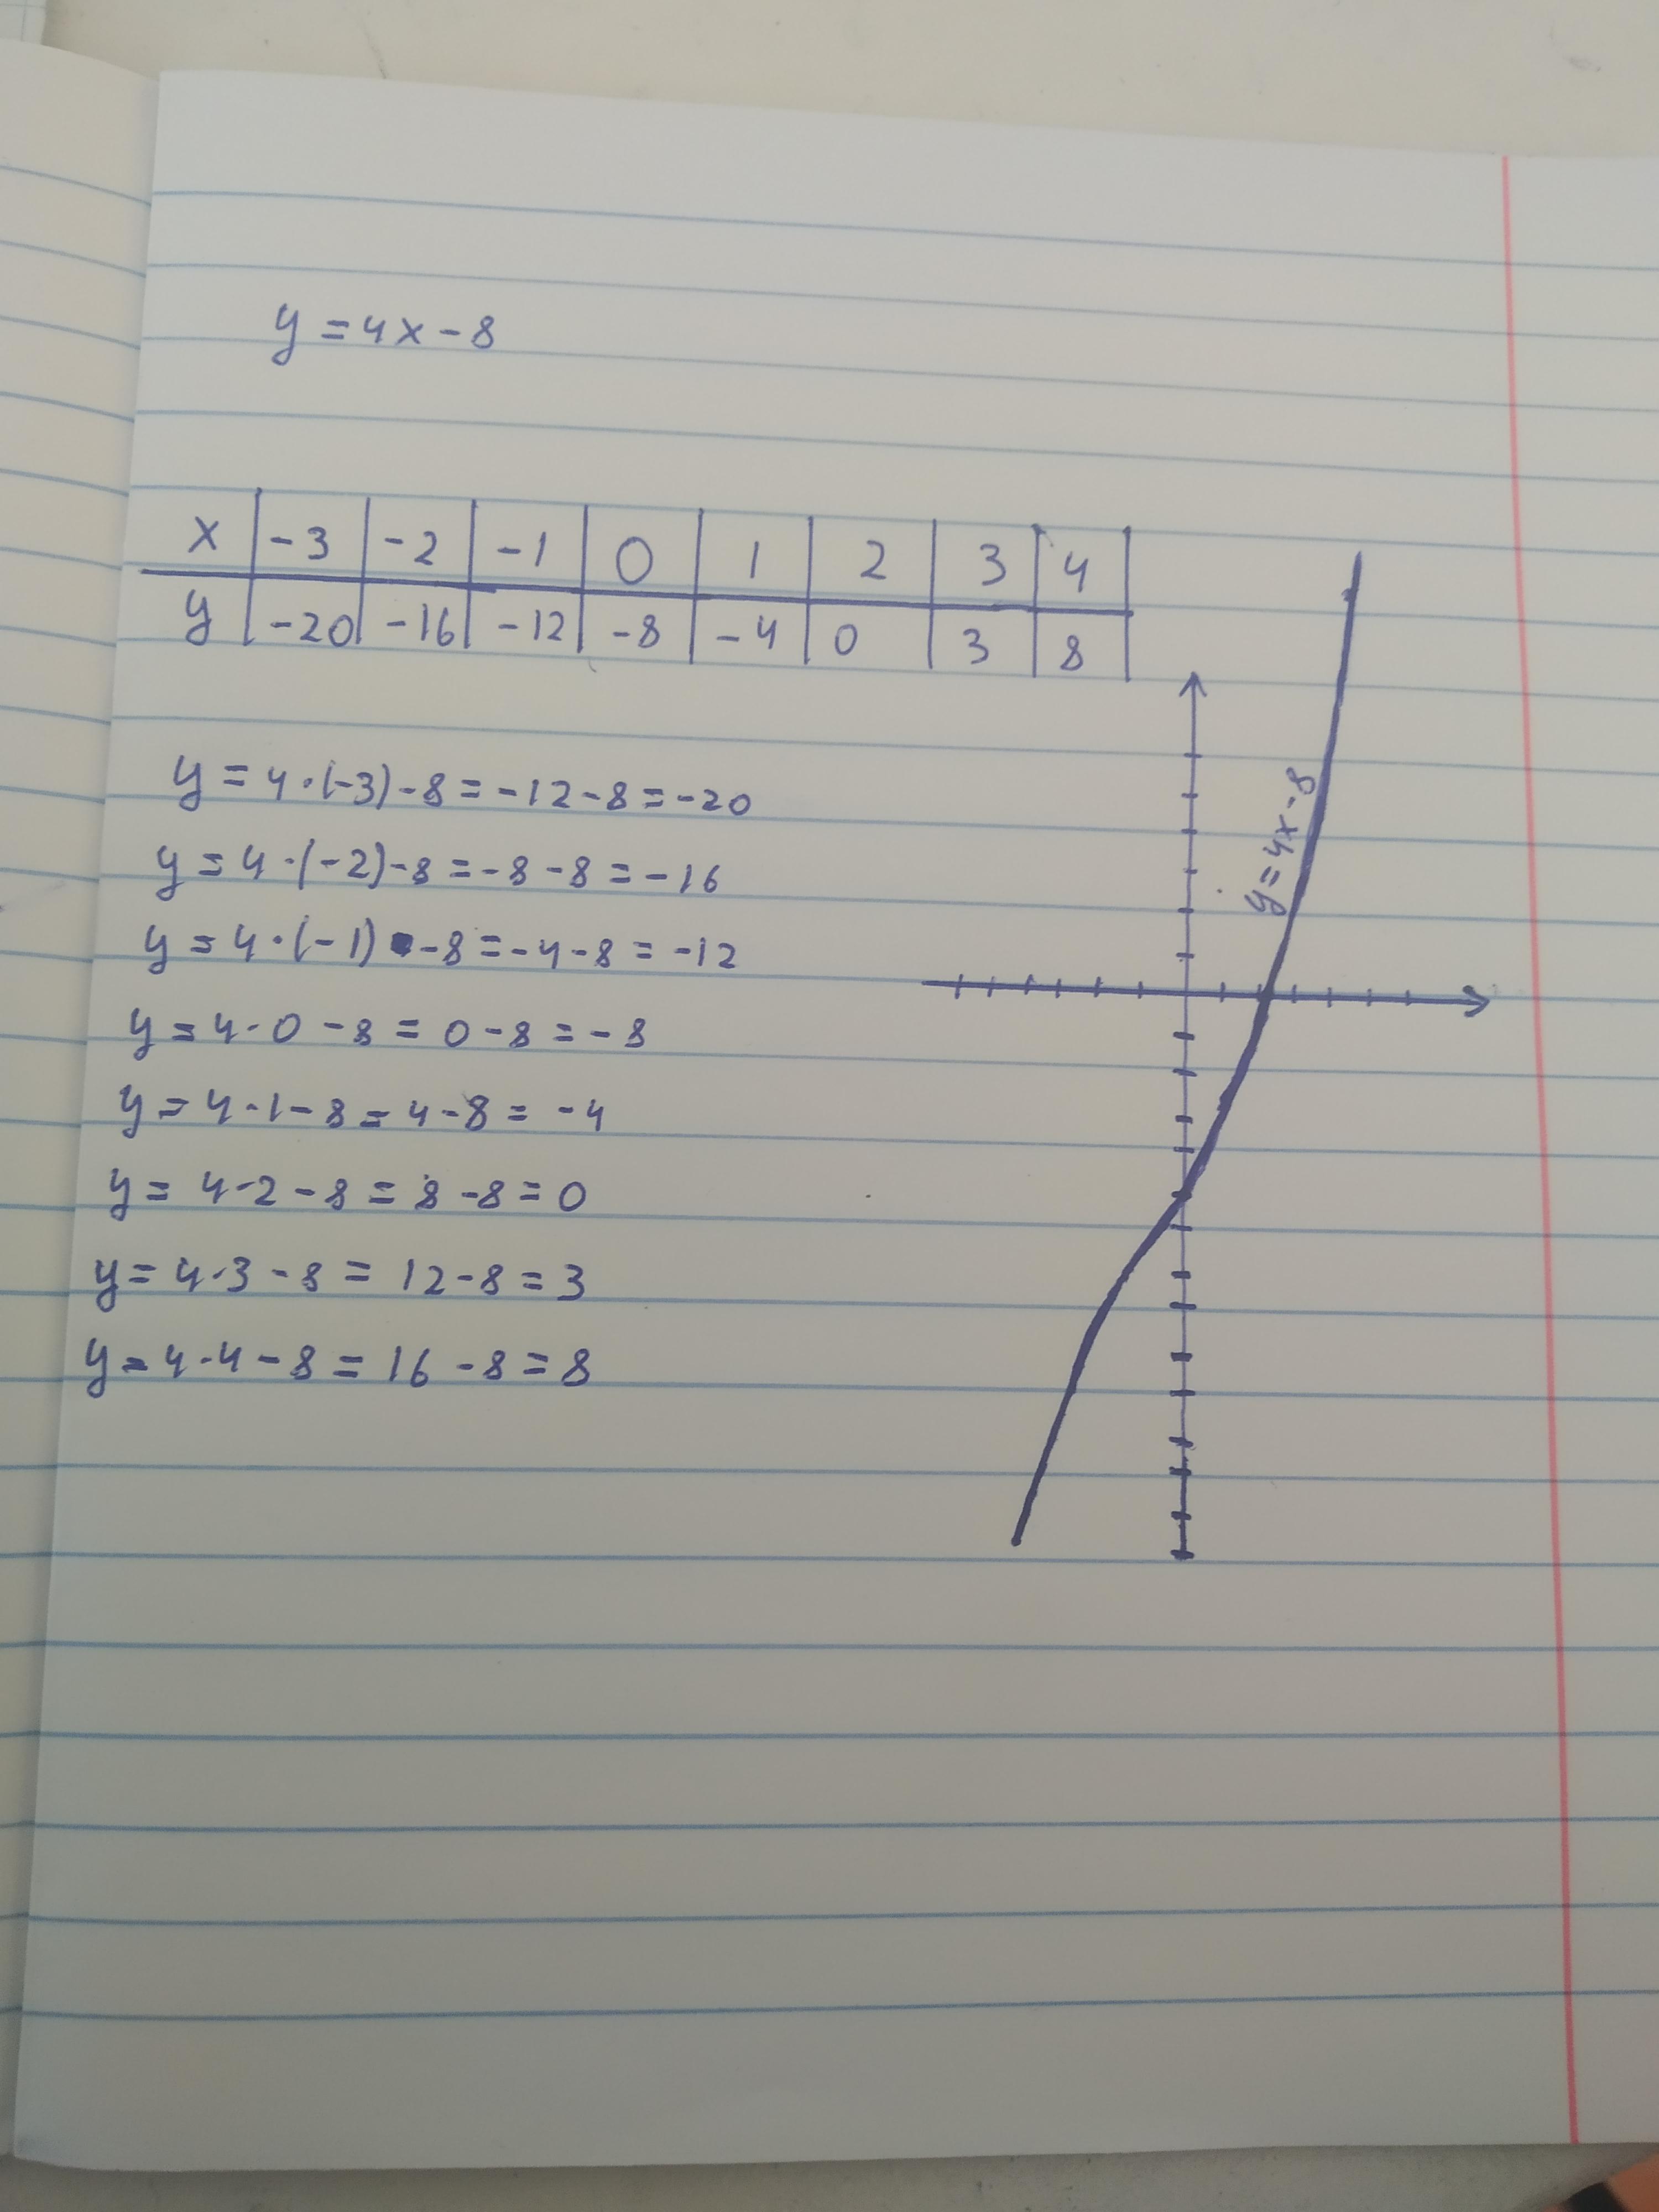 y = 4x - 8
x | -3 | -2 | -1 | 0 | 1 | 2 | 3 | 4
y | -20 | -16 | -12 | -8 | -4 | 0 | 3 | 8
y = 4·(-3)-8 = -12-8 = -20
y = 4·(-2)-8 = -8-8 = -16
y = 4·(-1)-8 = -4-8 = -12
y = 4·0-8 = 0-8 = -8
y = 4·1-8 = 4-8 = -4
y = 4·2-8 = 8-8 = 0
y = 4·3-8 = 12-8 = 3
y = 4·4-8 = 16-8 = 8
y = 4x-8